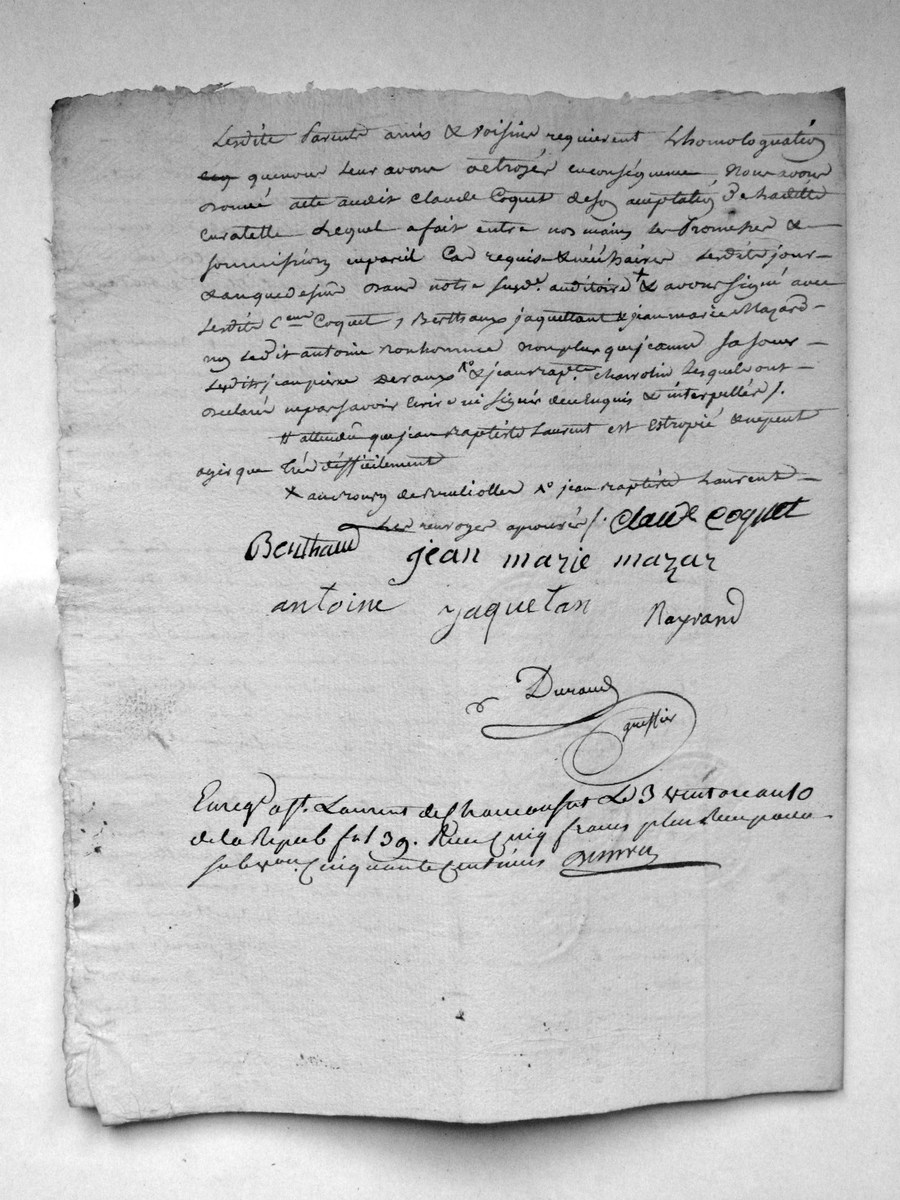 Lesdits Parents amis & voisins requierent Lhomologuation
que nous leur avons octroyée en conséquence, Nous avons
donné acte audit claude Coquet de son acceptation de Laditte
curatelle Lequel a fait entre nos mains les Promesses &
soummissions en pareil Cas requises & nécéssaires Lesdits jour
& an que dessus dans notre susd. auditoire & avons signé avec
Lesdits Coquet, Berthaux jaquettant & jean marie Mazard
non Ledit antoine Bonhomme non plus que jeanne sa soeur
Lesdits jean pierre Deraux & jean Bapt. charrolin Lesquels ont
déclaré ne pas savoir Ecrire ni signer de ce Enquis & interpellés /.
# attendu que jean Baptiste Laurent est Estropié & ne peut
agir que très difficilement
x au Bourg de jean Baptiste Laurent
Les renvoyes aprouvés /. Claude Coquet
Berthaud jean marie mazar
antoine jaquetan Rayrand
Durand
greffier
Enreg. a St. Laurent de Chamousset Le 3 ventose an 10
de la Repub f. 39. Recu Cinq francs plus Recu pour
subvon. Cinquante Centimes